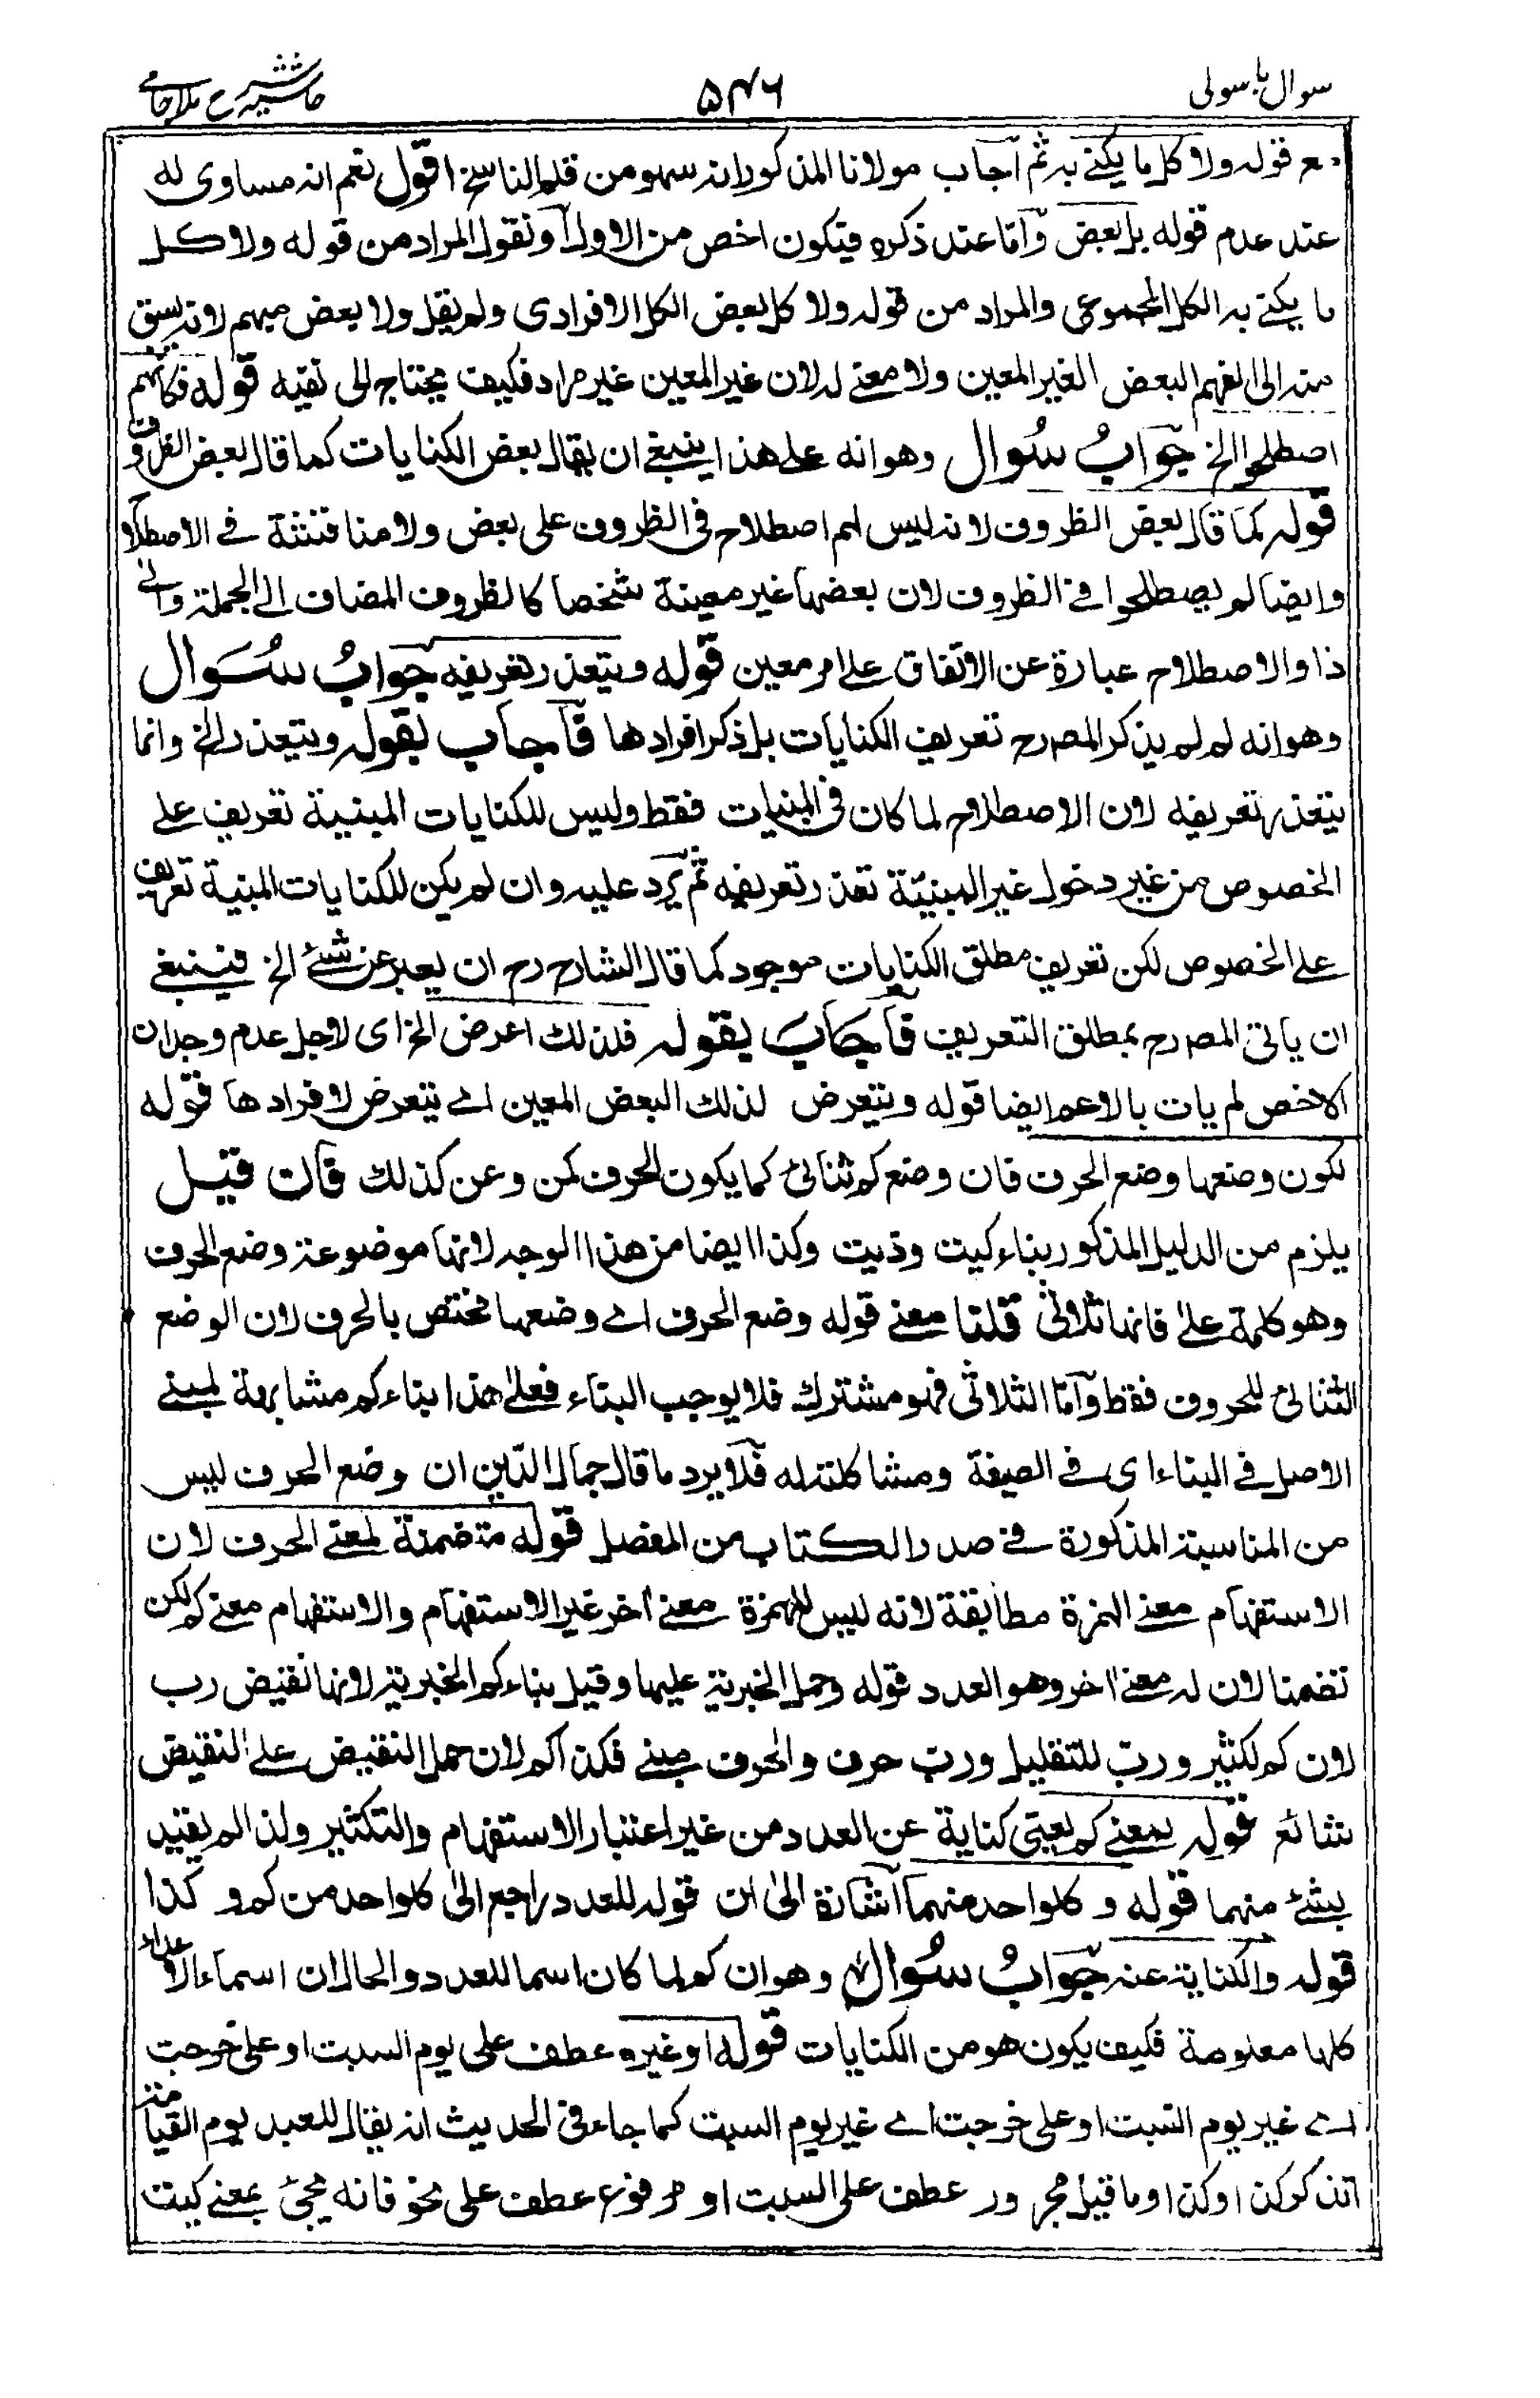 سوال باسولی ۵۴۶ حاشیہ شرح ملا جامی
مع قوله ولا كل ما يكنے به ثم اجاب مولانا المذكور انه سهو من قلم الناسخ اقول نعم انه مساوى له
عند عدم قوله بل بعض واما عند ذكره فيكون اخص من الاول او نقول المراد من قوله ولا كل
ما يكنے به الكل المجموعى والمراد من قوله ولا كل بعض الكل الافرادى ولم يقل ولا بعض مبهم لانه يسبق
منه الى الفهم البعض الغير المعين ولا معنے له لان غير المعين غير مراد فكيف يحتاج الى نفيه قوله فكانهم
اصطلحوا الخ جواب سوال وهو انه على هذا ينبغے ان يقال بعض الكنايات كما قال بعض الظروف
قوله كما قال بعض الظروف لانه ليس لهم اصطلاح فى الظروف على بعض ولا مناقشة فے الاصطلاح
وايضا لم يصطلحوا فے الظروف لان بعضها غير معينة شخصا كالظروف المضاف الى الجملة والے
ذا والاصطلاح عبارة عن الاتفاق على امر معين قوله ويتعذر تعريفه جواب سوال
وهو انه لم لم يذكر المصرح تعريف الكنايات بل ذكر افرادها فاجاب بقوله ويتعذر الخ وانما
يتعذر تعريفه لان الاصطلاح لما كان فى المبنيات فقط وليس للكنايات المبنية تعريف على
الخصوص من غير دخول غير المبنية تعذر تعريفه ثم يرد عليه وان لم يكن للكنايات المبنية تعريف
على الخصوص لكن تعريف مطلق الكنايات موجود كما قال الشارح رح ان يعبر عن شئ الخ فينبغے
ان ياتى المصرح بمطلق التعريف فاجاب بقوله فلذلك اعرض الخ اى لاجل عدم وجدان
الاخص لم يات بالاعم ايضا قوله ويتعرض لذلك البعض المعين اے يتعرض لافرادها قوله
لكون وضعها وضع الحرف فان وضع كم ثنائى كما يكون الحرف كمن وعن كذلك فان قيل
يلزم من الدليل المذكور بناء كيت وذيت وكذا ايضا من هذا الوجه لانها موضوعة وضع الحرف
وهو كلمة على فانها ثلاثى قلنا معنے قوله وضع الحرف اے وضعها مختص بالحرف لان الوضع
الثنائى للحروف فقط واما الثلاثى فهو مشترك فلا يوجب البناء فعلى هذا بناء كم مشابهة لمبنے
الاصل فے البناء اى فے الصيغة ومشاكلته له فلا يرد ما قال جمال الدين ان وضع الحرف ليس
من المناسبة المذكورة فے صدر الكتاب من المفصل قوله متضمنة لمعنے الحرف لان
الاستفهام معنے الهمزة مطابقة لانه ليس للهمزة معنے اخر غير الاستفهام والاستفهام معنے كم لكن
تضمنا لان له معنے اخر وهو العدد قوله وحمل الخبرية عليها وقيل بناء كم الخبرية لانها نقيض رب
لان كم لكثير ورب للتقليل ورب حرف والحرف مبنے فكذا كم لان حمل النقيض على النقيض
شائع قوله بمعنے كم يعنى كناية عن العدد من غير اعتبار الاستفهام والتكثير ولذا لم يقيد
بشئ منهما قوله و كلواحد منهما اشارة الى ان قوله للعدد راجع الى كلواحد من كم و كذا
قوله والكناية عنه جواب سوال وهو ان كم لما كان اسما للعدد والحال ان اسماء الاعداد
كلها معلومة فكيف يكون هو من الكنايات قوله او غيره عطف على يوم السبت او على خرجت
اے غير يوم السبت او على خرجت اے غير يوم السبت كما جاء فى الحديث انه يقال للعبد يوم القيامة
اتذكر كذا وكذا وما قيل مجرور عطف على السبت او مرفوع عطف على نحو فانه يجئ بمعنے كيت